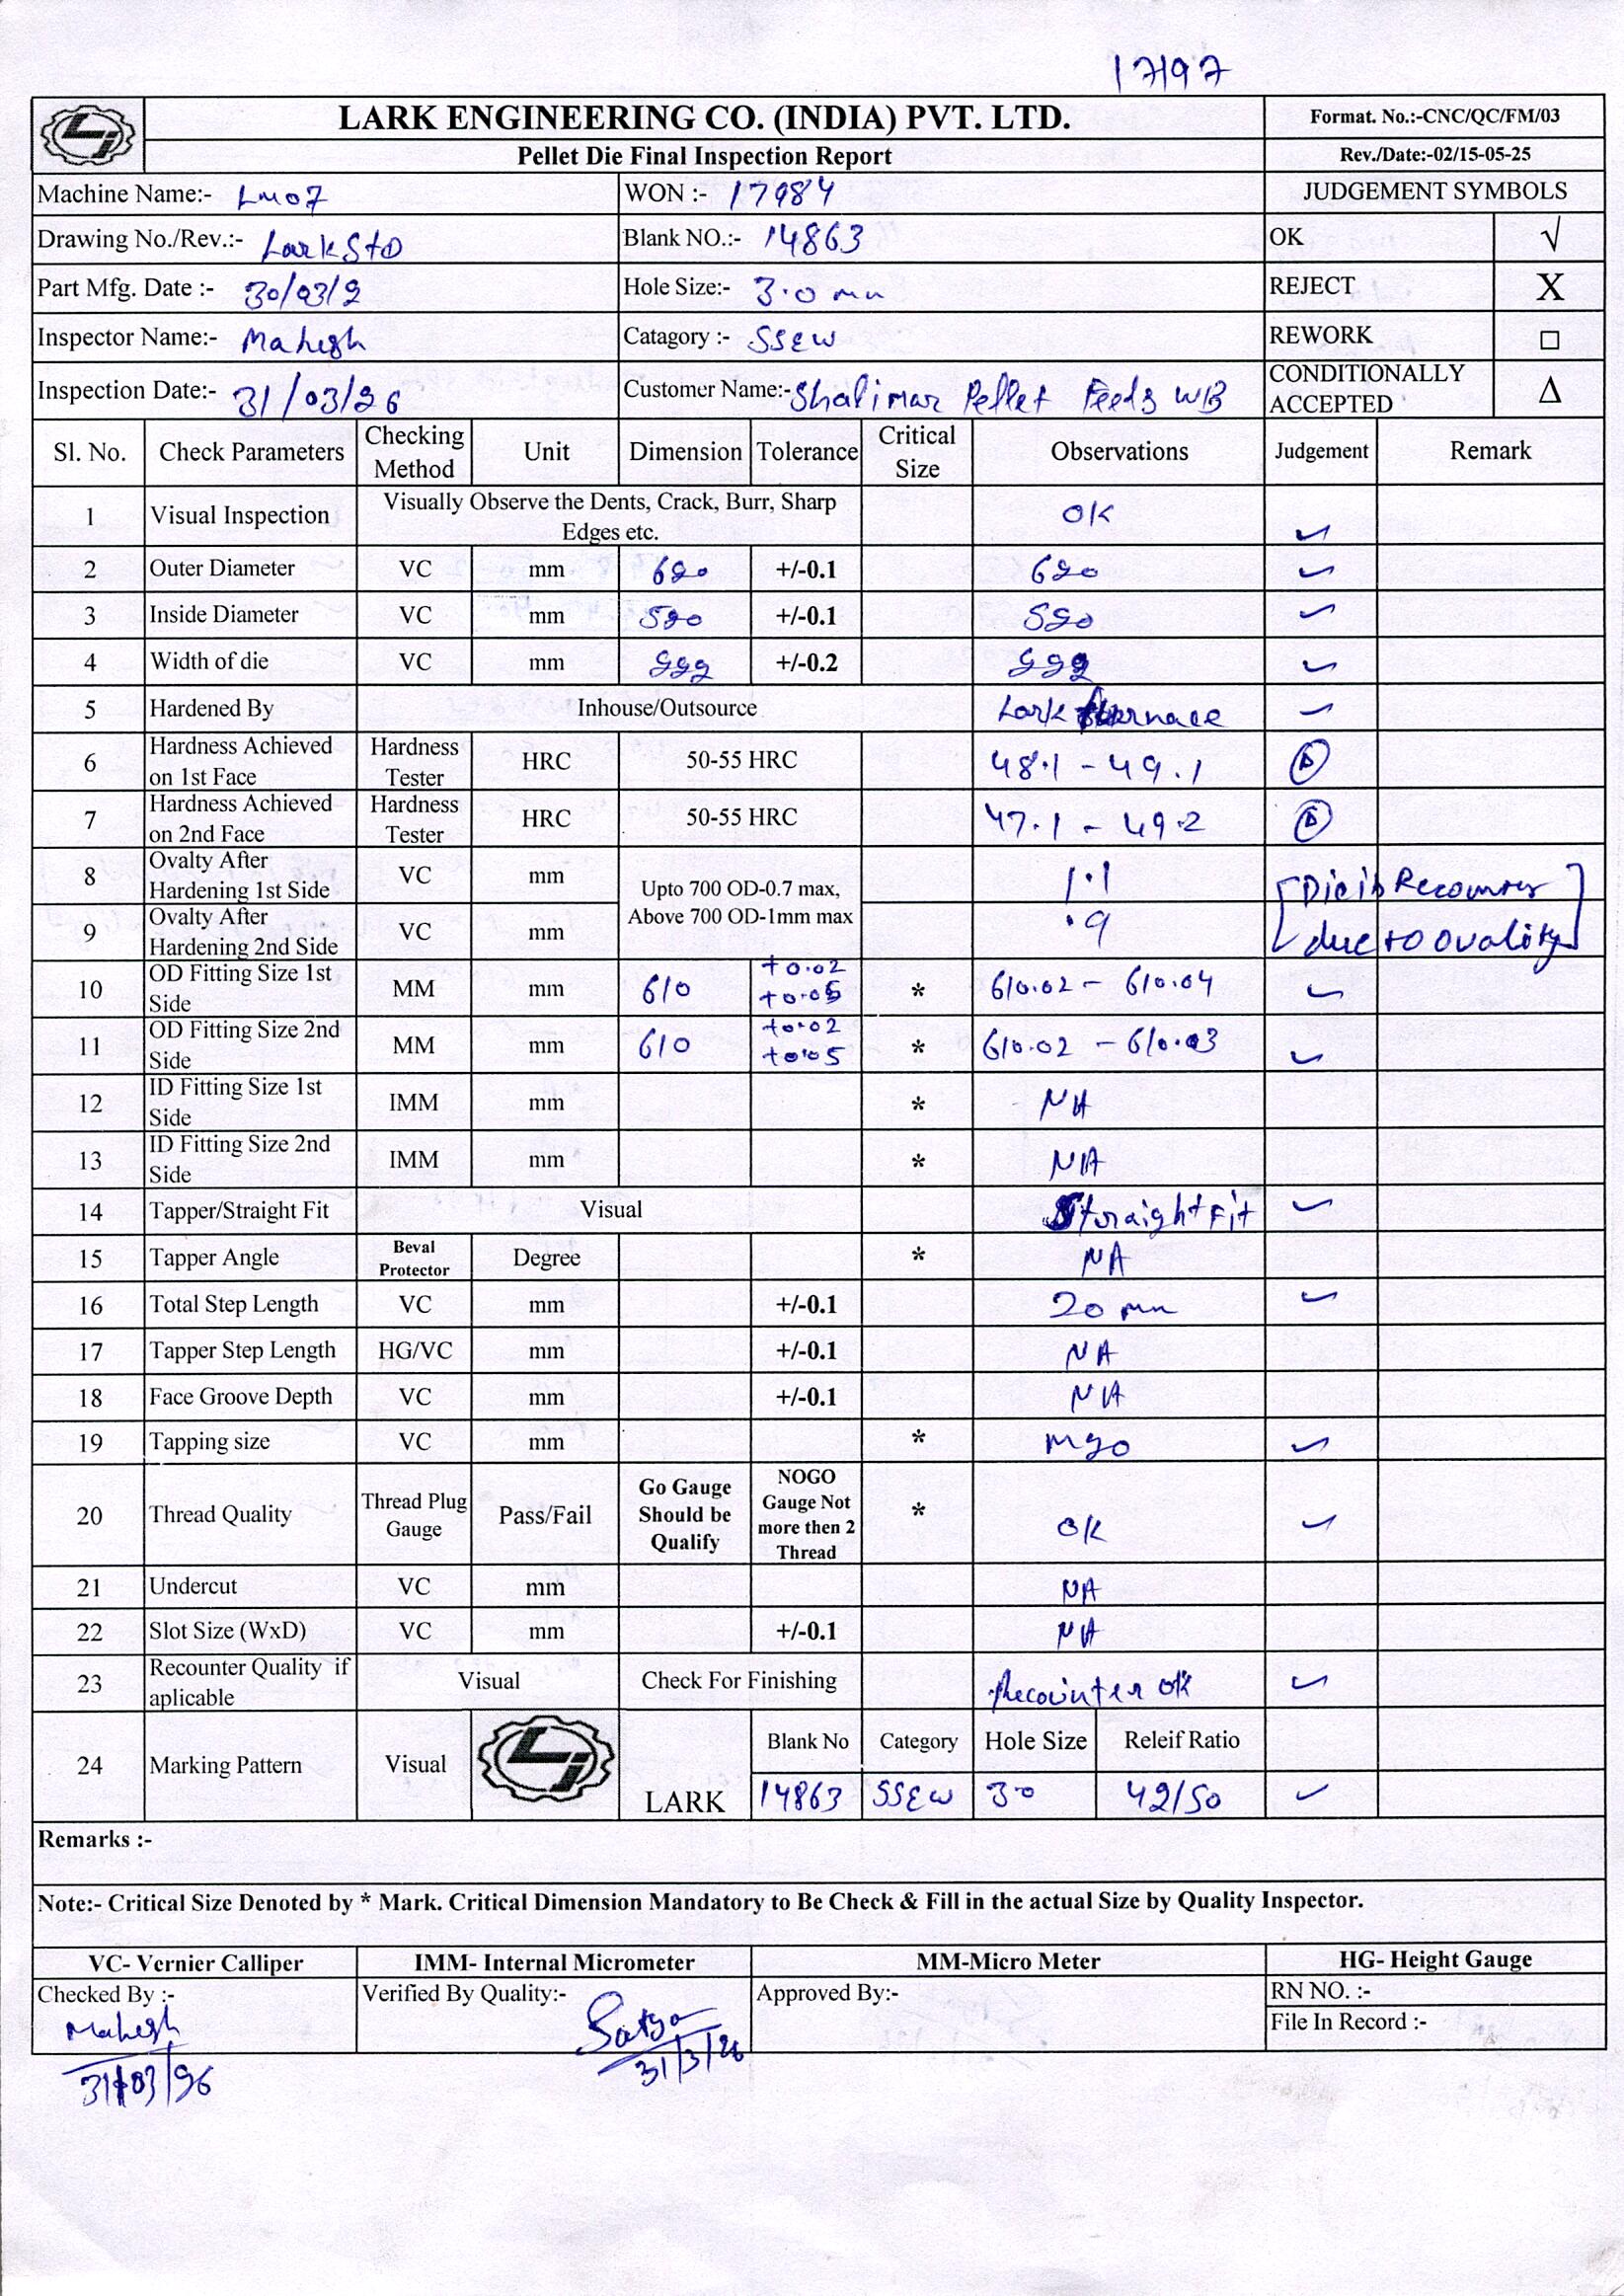 17197
LARK ENGINEERING CO. (INDIA) PVT. LTD.
Format. No.:-CNC/QC/FM/03
Pellet Die Final Inspection Report
Rev./Date:-02/15-05-25
Machine Name:- LM07 WON :- 17984 JUDGEMENT SYMBOLS
Drawing No./Rev.:- Lark StD Blank NO.:- 14863 OK √
Part Mfg. Date :- 30/03/2 Hole Size:- 3.0 mm REJECT X
Inspector Name:- Mahesh Catagory :- SSEW REWORK □
Inspection Date:- 31/03/26 Customer Name:- Shalimar Pellet Feeds WB CONDITIONALLY ACCEPTED Δ
Sl. No. Check Parameters Checking Method Unit Dimension Tolerance Critical Size Observations Judgement Remark
1 Visual Inspection Visually Observe the Dents, Crack, Burr, Sharp Edges etc. OK ✓
2 Outer Diameter VC mm 620 +/-0.1 620 ✓
3 Inside Diameter VC mm 520 +/-0.1 520 ✓
4 Width of die VC mm 222 +/-0.2 222 ✓
5 Hardened By Inhouse/Outsource Lark furnace ✓
6 Hardness Achieved on 1st Face Hardness Tester HRC 50-55 HRC 48.1 - 49.1 Δ
7 Hardness Achieved on 2nd Face Hardness Tester HRC 50-55 HRC 47.1 - 49.2 Δ
8 Ovalty After Hardening 1st Side VC mm Upto 700 OD-0.7 max, Above 700 OD-1mm max 1.1 [Die is Recounter
9 Ovalty After Hardening 2nd Side VC mm .9 due to ovality]
10 OD Fitting Size 1st Side MM mm 610 +0.02 +0.05 * 610.02 - 610.04 ✓
11 OD Fitting Size 2nd Side MM mm 610 +0.02 +0.05 * 610.02 - 610.03 ✓
12 ID Fitting Size 1st Side IMM mm * NA
13 ID Fitting Size 2nd Side IMM mm * NA
14 Tapper/Straight Fit Visual Straight Fit ✓
15 Tapper Angle Beval Protector Degree * NA
16 Total Step Length VC mm +/-0.1 20 mm ✓
17 Tapper Step Length HG/VC mm +/-0.1 NA
18 Face Groove Depth VC mm +/-0.1 NA
19 Tapping size VC mm * M20 ✓
20 Thread Quality Thread Plug Gauge Pass/Fail Go Gauge Should be Qualify NOGO Gauge Not more then 2 Thread * OK ✓
21 Undercut VC mm NA
22 Slot Size (WxD) VC mm +/-0.1 NA
23 Recounter Quality if aplicable Visual Check For Finishing Recounter ok ✓
24 Marking Pattern Visual LARK Blank No Category Hole Size Releif Ratio
14863 SSEW 30 42/50 ✓
Remarks :-
Note:- Critical Size Denoted by * Mark. Critical Dimension Mandatory to Be Check & Fill in the actual Size by Quality Inspector.
VC- Vernier Calliper IMM- Internal Micrometer MM-Micro Meter HG- Height Gauge
Checked By :- Verified By Quality:- Approved By:- RN NO. :-
File In Record :-
Mahesh Satya
31/03/26 31/3/26